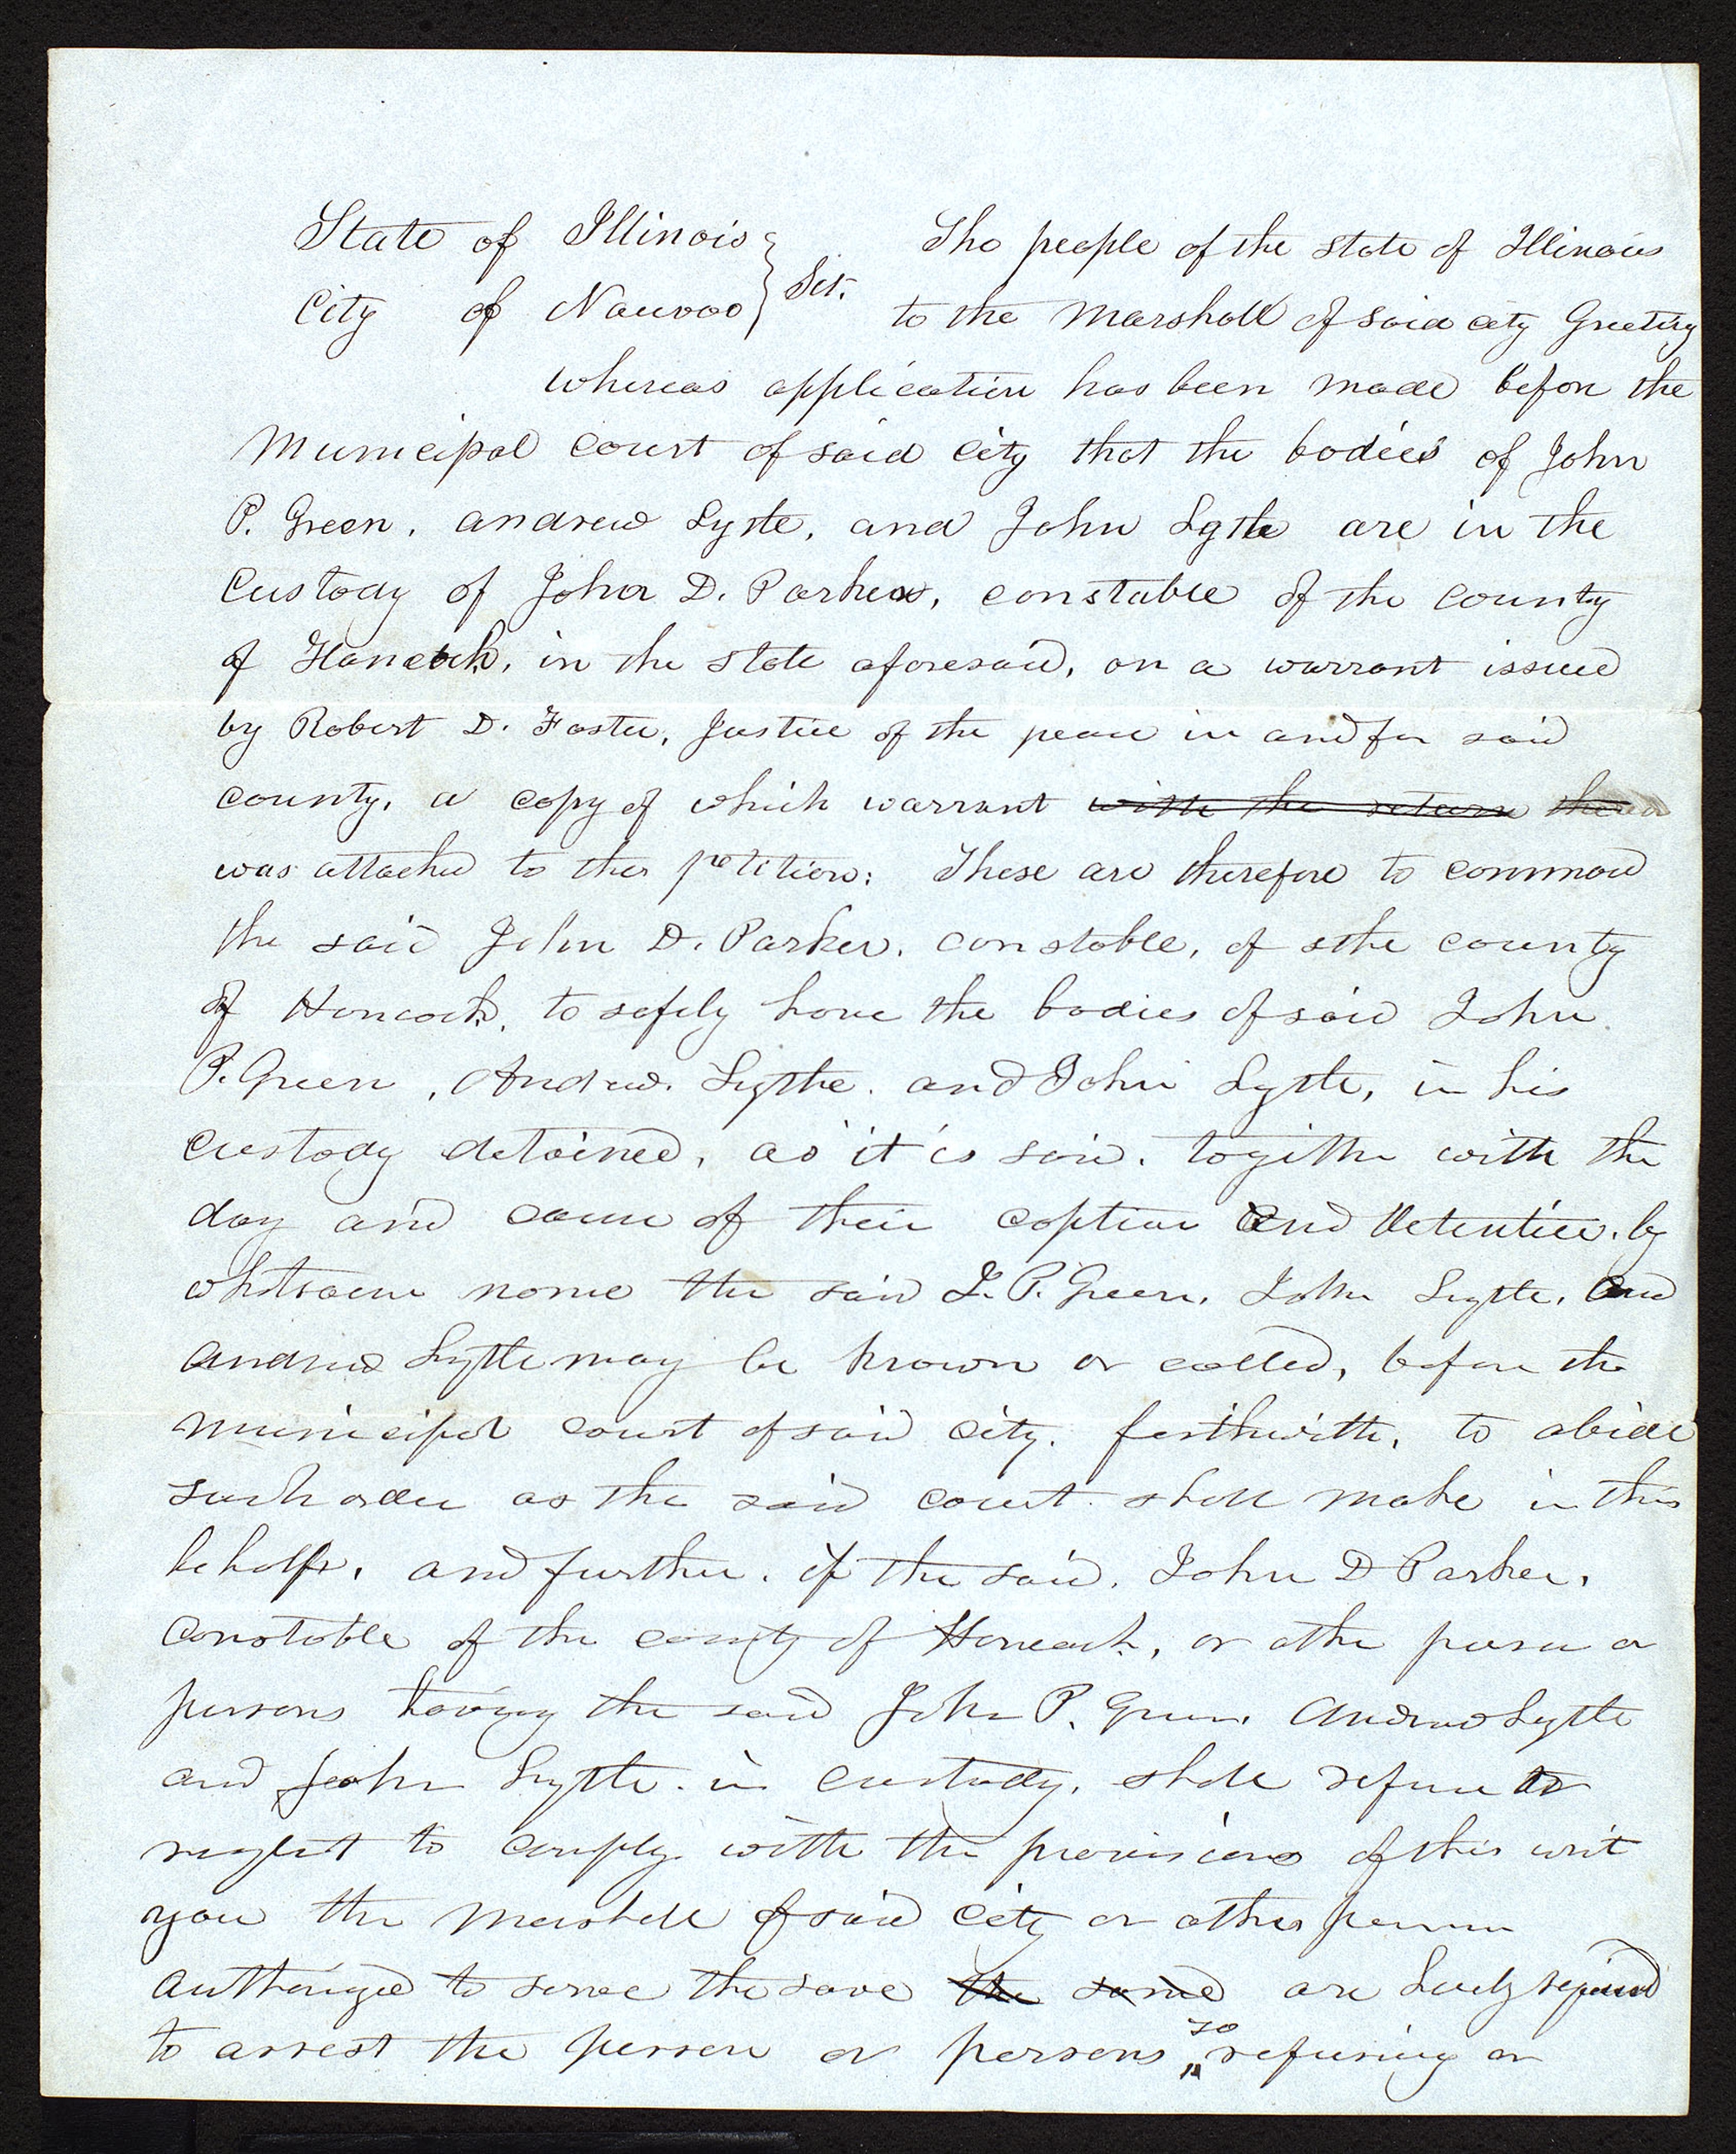 State of Illinois } Sct. The people of the state of Illinois
City of Nauvoo } to the Marshall of said city Greeting
whereas application has been made before the
Municipal court of said city that the bodies of John
P. Green, andrew Lytle, and John Lytle are in the
Custody of John D. Parker, constable of the county
of Hancock, in the state aforesaid, on a warrant issued
by Robert D. Foster, Justice of the peace in and for said
county, a copy of which warrant with the return
was attached to their petition: These are therefore to command
the said John D. Parker, constable, of the county
of Hancock, to safely have the bodies of said John
P. Green, Andrew Lythe. and John Lytle, in his
custody detained, as it is said, together with the
day and cause of their caption and detention, by
whatsoever name the said J. P. Green, John Lytle, and
andrew Lytle may be known or called, before the
municipal court of said city, forthwith, to abide
such order as the said court shall make in this
behalf, and further, if the said, John D Parker,
Constable of the county of Hancock, or other person or
persons having the said John P. Green, Andrew Lytle
and John Lytle in custody, shall refuse or
neglect to comply with the provisions of this writ
you the Marshall of said city or other person
authorized to serve the same the same are hereby required
to arrest the person or persons so refusing or